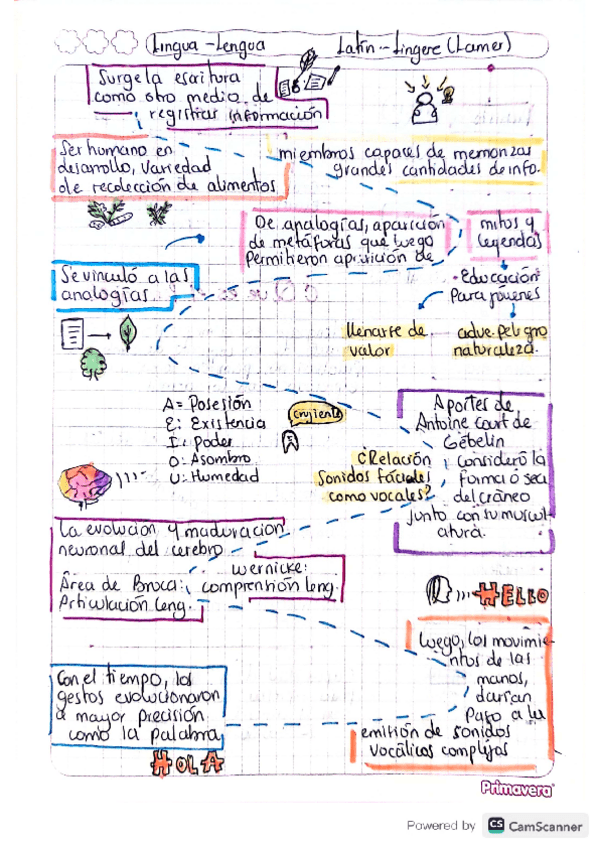 Lingua - Lengua
Latín - Lingere (Lamer)
Surge la escritura
como otro medio de
registrar información
Ser humano en
desarrollo, variedad
de recolección de alimentos
miembros capaces de memorizas
grandes cantidades de info.
De analogías, aparición
de metáforas que luego
Permitieron aparición de
mitos y
leyendas
Se vinculó a las
analogías
• Educación
Para jóvenes
llenarse de
valor
adve. peligro
naturaleza.
A = Posesión
E: Existencia
I: Poder
O: Asombro
U: Humedad
Crujiente
¿Relación
Sonidos faciales
como vocales?
Aportes de
Antoine court de
Gebelin
consideró la
forma ó sea
del cráneo
junto con su muscul-
atura.
La evolución y maduración
neuronal del cerebro
Wernicke:
Área de Broca: comprensión leng.
Articulación Leng.
HELLO
Luego, los movimie-
ntos de las
manos,
darían
Paso a la
emisión de sonidos
vocálicos complejos
Con el tiempo, los
gestos evolucionaron
a mayor precisión
como la palabra
HOLA
Primavera
Powered by CS CamScanner